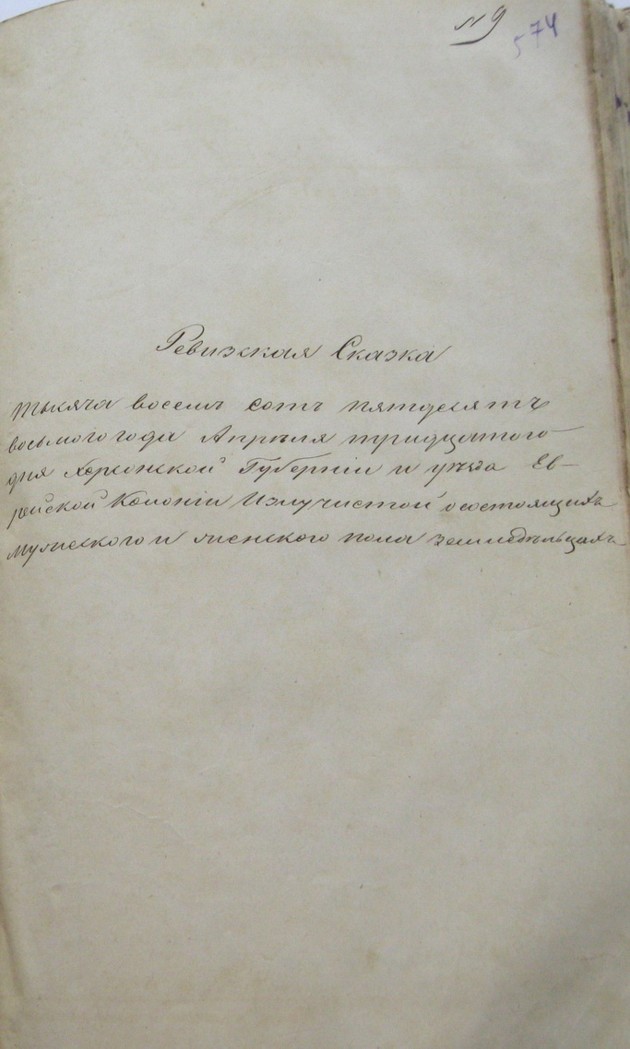 № 9
574
Ревизкая Сказка
тысяча восемь сотъ пятдесятъ
восьмого года Апрѣля тридцатого
дня Херсонской Губерніи и уѣзда Ев-
рейской Колоніи Излучистой о состоящихъ
мужескаго и женского пола земледѣльцахъ